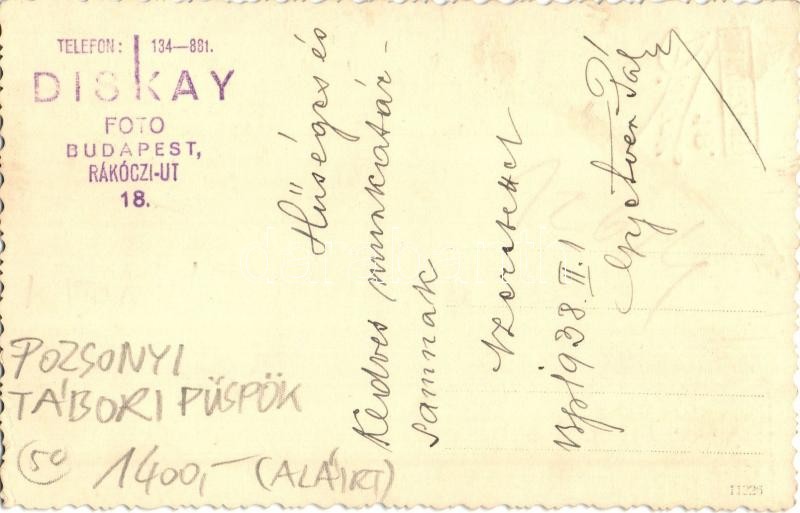 TELEFON: 134—881.
DISKAY
FOTO
BUDAPEST,
RÁKÓCZI-UT
18.
Hűséges és
kedves munkatár-
samnak
szeretettel
Bp 1938. II. 1
Pál
POZSONYI
TÁBORI PÜSPÖK
50
1400,- (ALÁÍRT)
11226